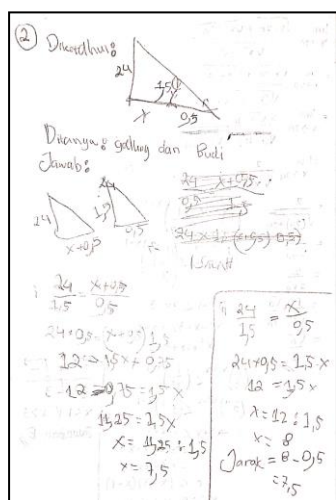 2 Diketahui:
24
1,5
x
0,5
Ditanya: gedung dan Budi
Jawab:
24
x+0,5
1,5
0,5
24 x+0,5
0,5 1,5
i 24/1,5 = x+0,5/0,5
24×0,5 = (x+0,5) 1,5
12 = 1,5x + 0,75
12 - 0,75 = 1,5x
11,25 = 1,5x
x = 11,25 : 1,5
x = 7,5
ii 24/1,5 = x/0,5
24×0,5 = 1,5x
12 = 1,5x
x = 12 : 1,5
x = 8
Jarak = 8 - 0,5
= 7,5